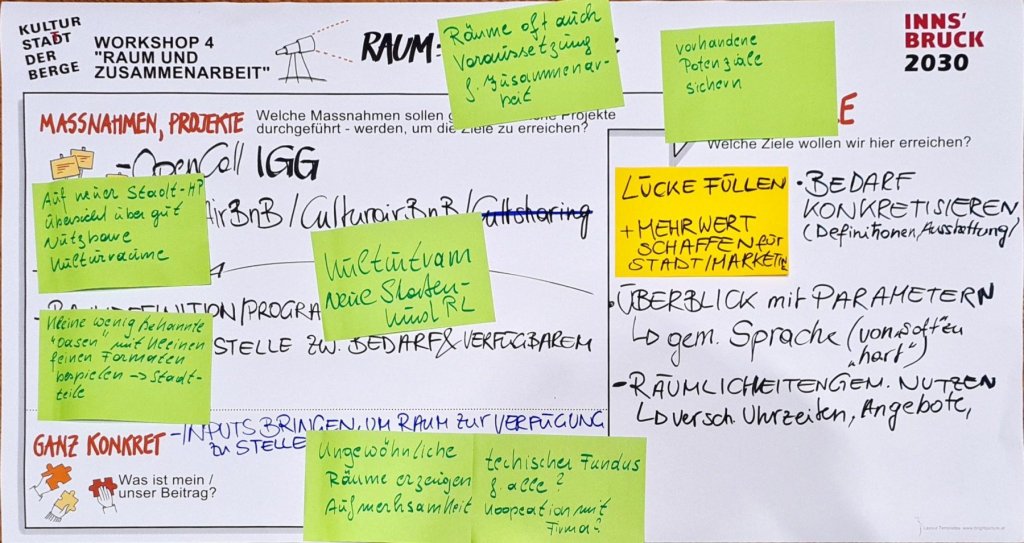 KULTUR
STADT
DER
BERGE
WORKSHOP 4
"RAUM UND
ZUSAMMENARBEIT"
RAUM:
Räume oft auch
Voraussetzung
f. Zusammenar-
beit
vorhandene
Potenziale
sichern
INNS'
BRUCK
2030
MASSNAHMEN, PROJEKTE
Welche Massnahmen sollen
Projekte
durchgeführt - werden, um die Ziele zu erreichen?
- OpenCall IGG
AirBnB / CulturairBnB / Cultsharing
Auf neuer Stadt-HP
übersicht über gut
Nutzbare
Kulturräume
Kulturtram
neue Straßen-
kunst RL
STELLE ZW. BEDARF & VERFÜGBAREM
Kleine wenig bekannte
"Oasen" mit kleinen
feinen Formaten
bespielen -> Stadt-
teile
Welche Ziele wollen wir hier erreichen?
LÜCKE FÜLLEN
+ MEHRWERT
SCHAFFEN für
STADT/MARKETIN
• BEDARF
KONKRETISIEREN
(Definitionen/Ausstattung)
• ÜBERBLICK mit PARAMETERN
↳ gem. Sprache (von „soft"en
„hart")
- RÄUMLICHEITEN GEM. NUTZEN
↳ versch. Uhrzeiten, Angebote,
GANZ KONKRET
- INPUTS BRINGEN, UM RAUM ZUR VERFÜGUNG
ZU STELLE
Was ist mein /
unser Beitrag?
Ungewöhnliche
Räume erzeugen
Aufmerksamkeit
techischer Fundus
f. alle?
Koopeation mit
Firma?